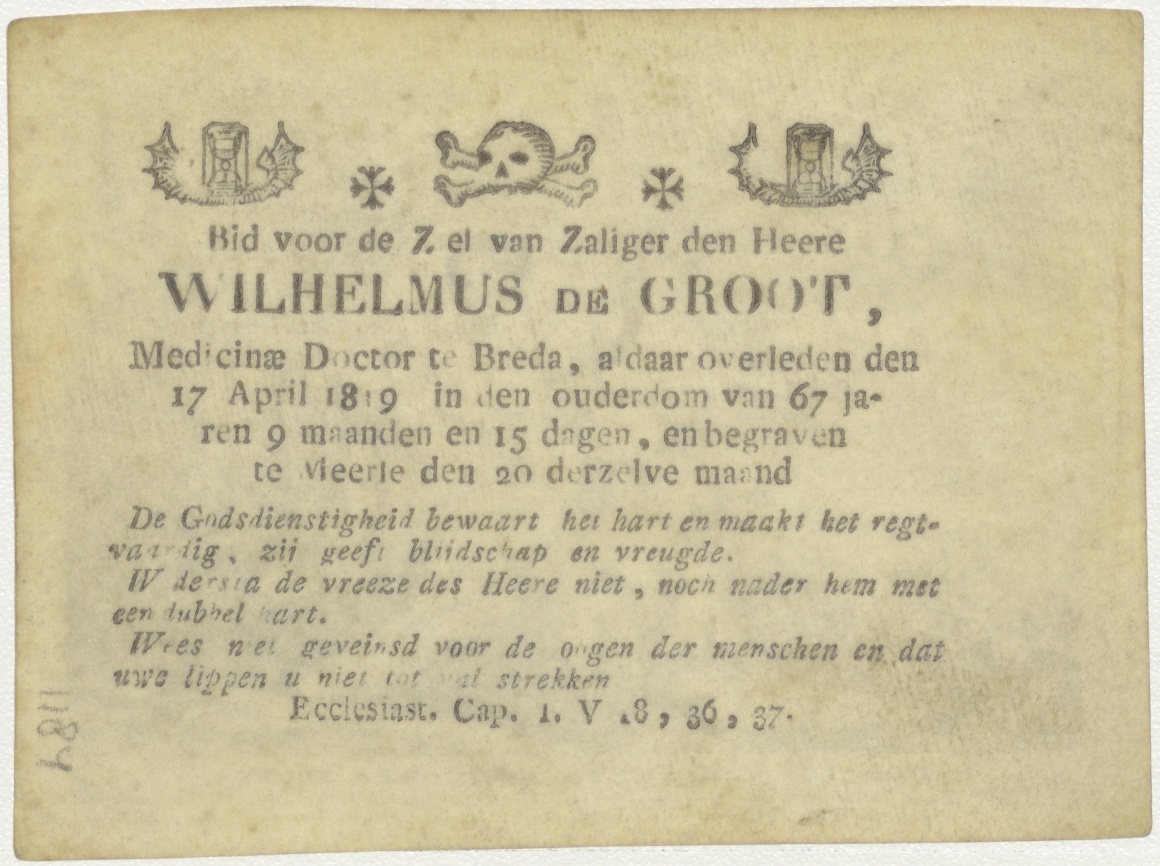 Bid voor de Ziel van Zaliger den Heere
WILHELMUS DE GROOT,
Medicinæ Doctor te Breda, aldaar overleden den
17 April 1819 in den ouderdom van 67 ja-
ren 9 maanden en 15 dagen, en begraven
te Meerle den 20 derzelve maand
De Godsdienstigheid bewaart het hart en maakt het regt-
vaardig, zij geeft blijdschap en vreugde.
Wdersta de vreeze des Heere niet, noch nader hem met
een dubbel hart.
Wees niet geveinsd voor de oogen der menschen en dat
uwe lippen u niet tot val strekken
Ecclesiast. Cap. 1. V 18, 36, 37.